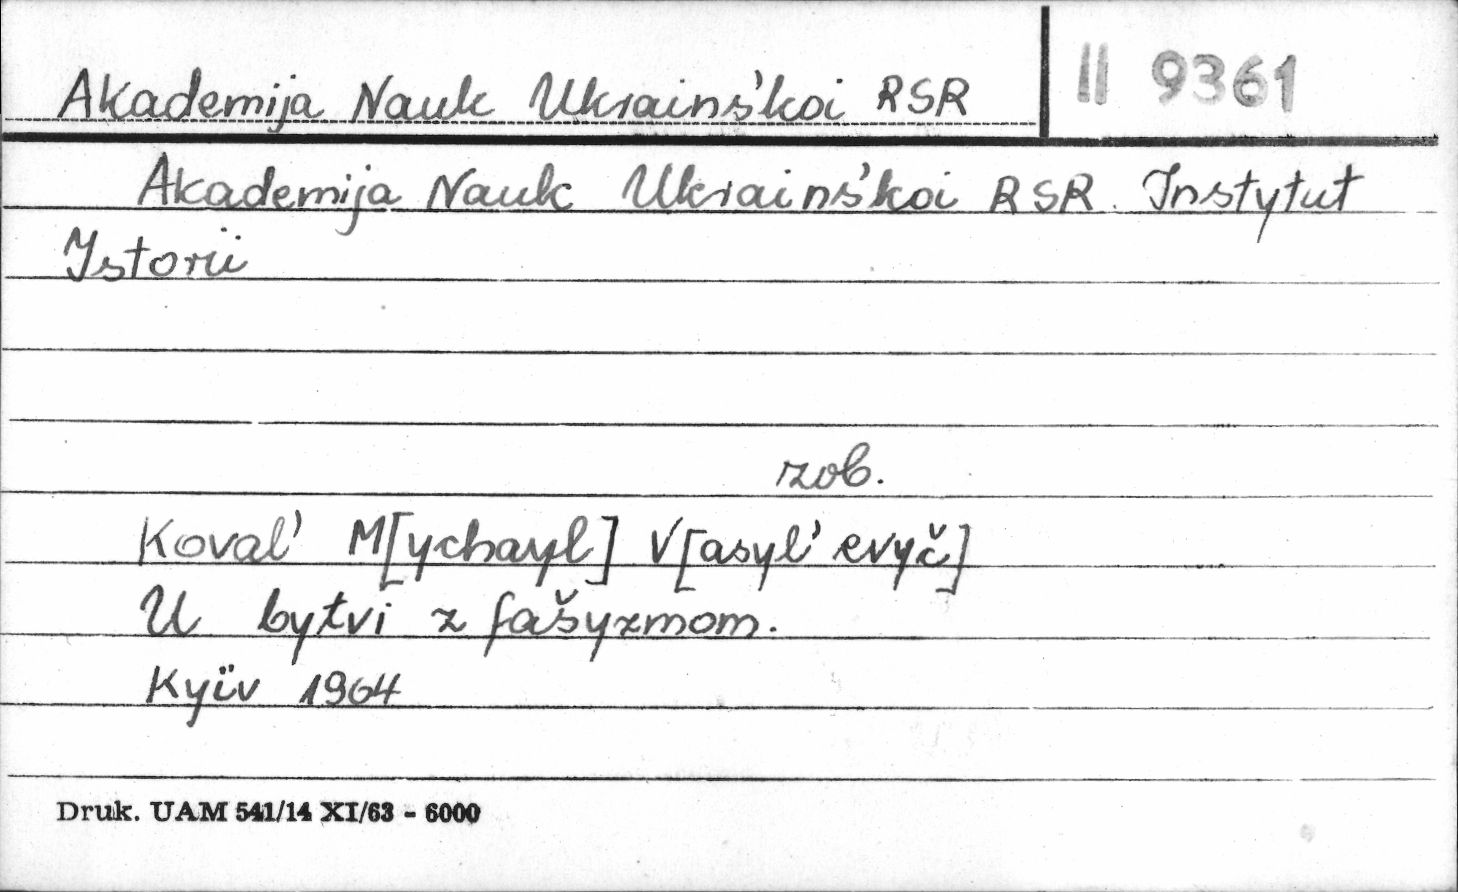 Akademija Nauk Ukrainśkoi RSR
II 9361
Akademija Nauk Ukrainśkoi RSR. Instytut
Istorii
zob.
Koval' M[ychayl] V[asyl'evyč]
U bytvi z fašyzmom.
Kyïv 1964
Druk. UAM 541/14 XI/63 - 6000